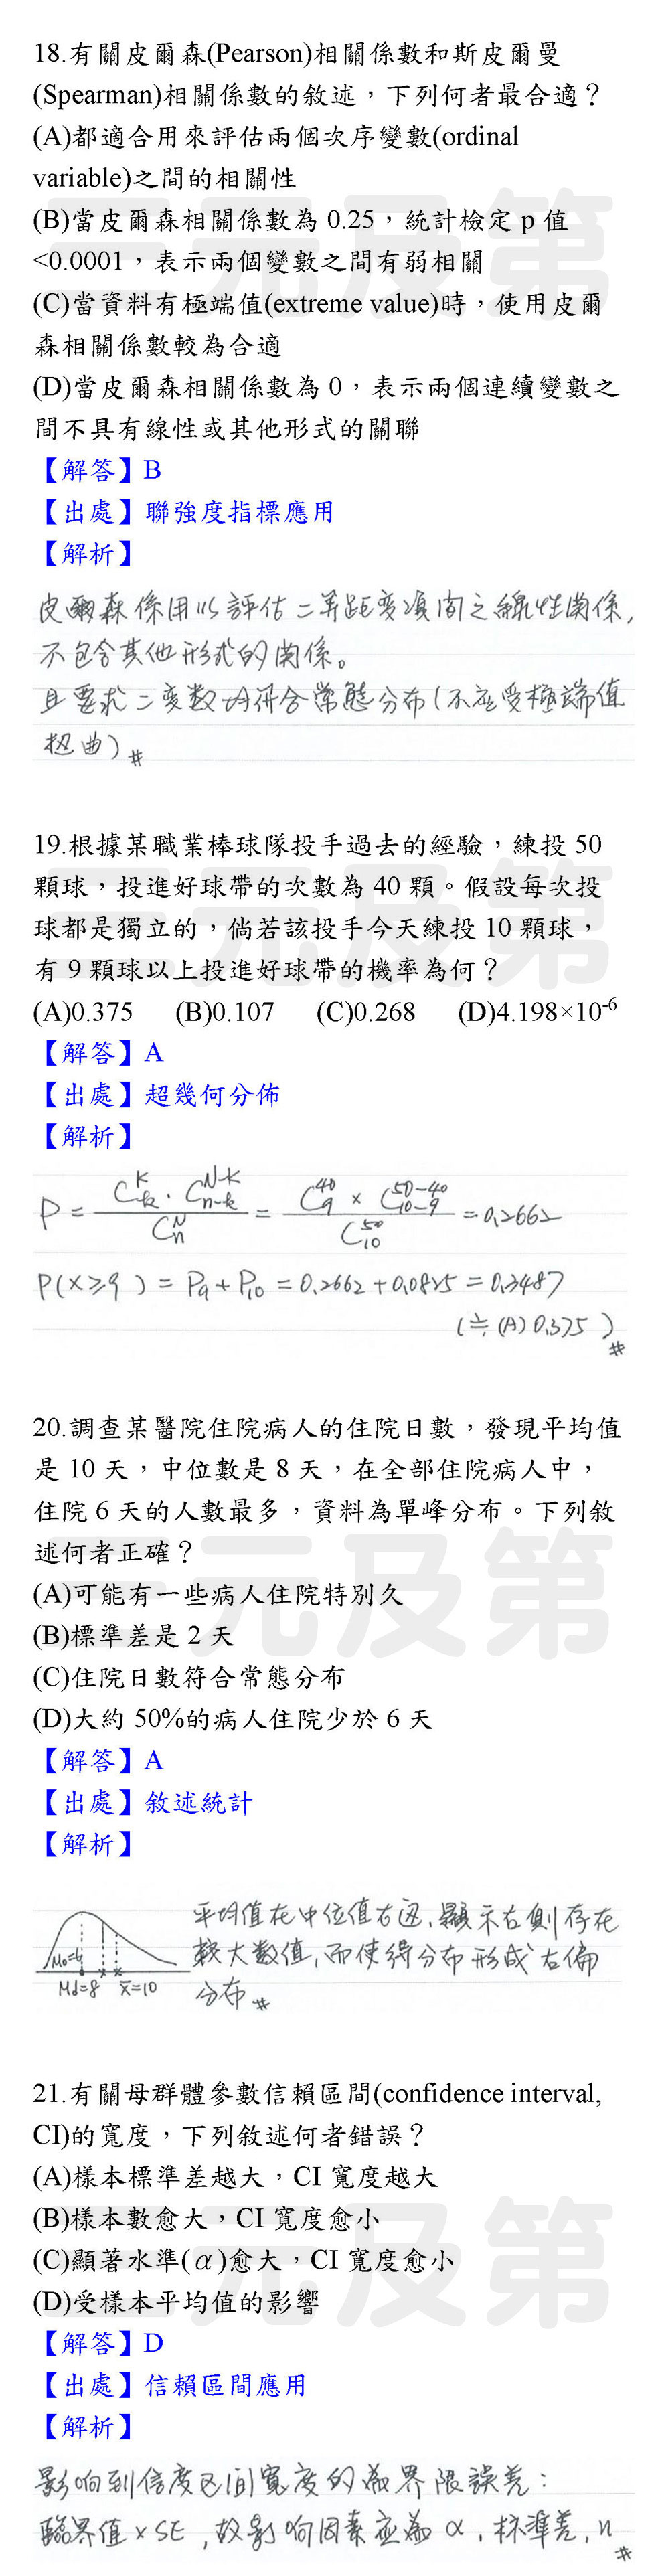 18.有關皮爾森(Pearson)相關係數和斯皮爾曼
(Spearman)相關係數的敘述，下列何者最合適？
(A)都適合用來評估兩個次序變數(ordinal
variable)之間的相關性
(B)當皮爾森相關係數為 0.25，統計檢定 p 值
<0.0001，表示兩個變數之間有弱相關
(C)當資料有極端值(extreme value)時，使用皮爾
森相關係數較為合適
(D)當皮爾森相關係數為 0，表示兩個連續變數之
間不具有線性或其他形式的關聯
【解答】B
【出處】聯強度指標應用
【解析】
皮爾森係用以評估二等距變項間之線性関係,
不包含其他形式的関係。
且要求二变数均符合常態分布(不应受極端值
扭曲)#
19.根據某職業棒球隊投手過去的經驗，練投 50
顆球，投進好球帶的次數為 40 顆。假設每次投
球都是獨立的，倘若該投手今天練投 10 顆球，
有 9 顆球以上投進好球帶的機率為何？
(A)0.375 (B)0.107 (C)0.268 (D)4.198×10⁻⁶
【解答】A
【出處】超幾何分佈
【解析】
P = C^K_k · C^N-K_n-k / C^N_n = C^40_9 × C^50-40_10-9 / C^50_10 = 0.2662
P(X≥9) = P9 + P10 = 0.2662 + 0.0825 = 0.3487
(≒ (A) 0.375 )#
20.調查某醫院住院病人的住院日數，發現平均值
是 10 天，中位數是 8 天，在全部住院病人中，
住院 6 天的人數最多，資料為單峰分布。下列敘
述何者正確？
(A)可能有一些病人住院特別久
(B)標準差是 2 天
(C)住院日數符合常態分布
(D)大約 50%的病人住院少於 6 天
【解答】A
【出處】敘述統計
【解析】
平均值在中位值右边,顯示右側存在
較大数值,而使得分布形成右偏
分布#
Mo=6
Md=8 x̄=10
21.有關母群體參數信賴區間(confidence interval,
CI)的寬度，下列敘述何者錯誤？
(A)樣本標準差越大，CI 寬度越大
(B)樣本數愈大，CI 寬度愈小
(C)顯著水準(α)愈大，CI 寬度愈小
(D)受樣本平均值的影響
【解答】D
【出處】信賴區間應用
【解析】
影响到信度区间寬度的為界限誤差:
臨界值×SE,故影响因素应為 α,标準差,n
#
三元及第
三元及第
三元及第
三元及第